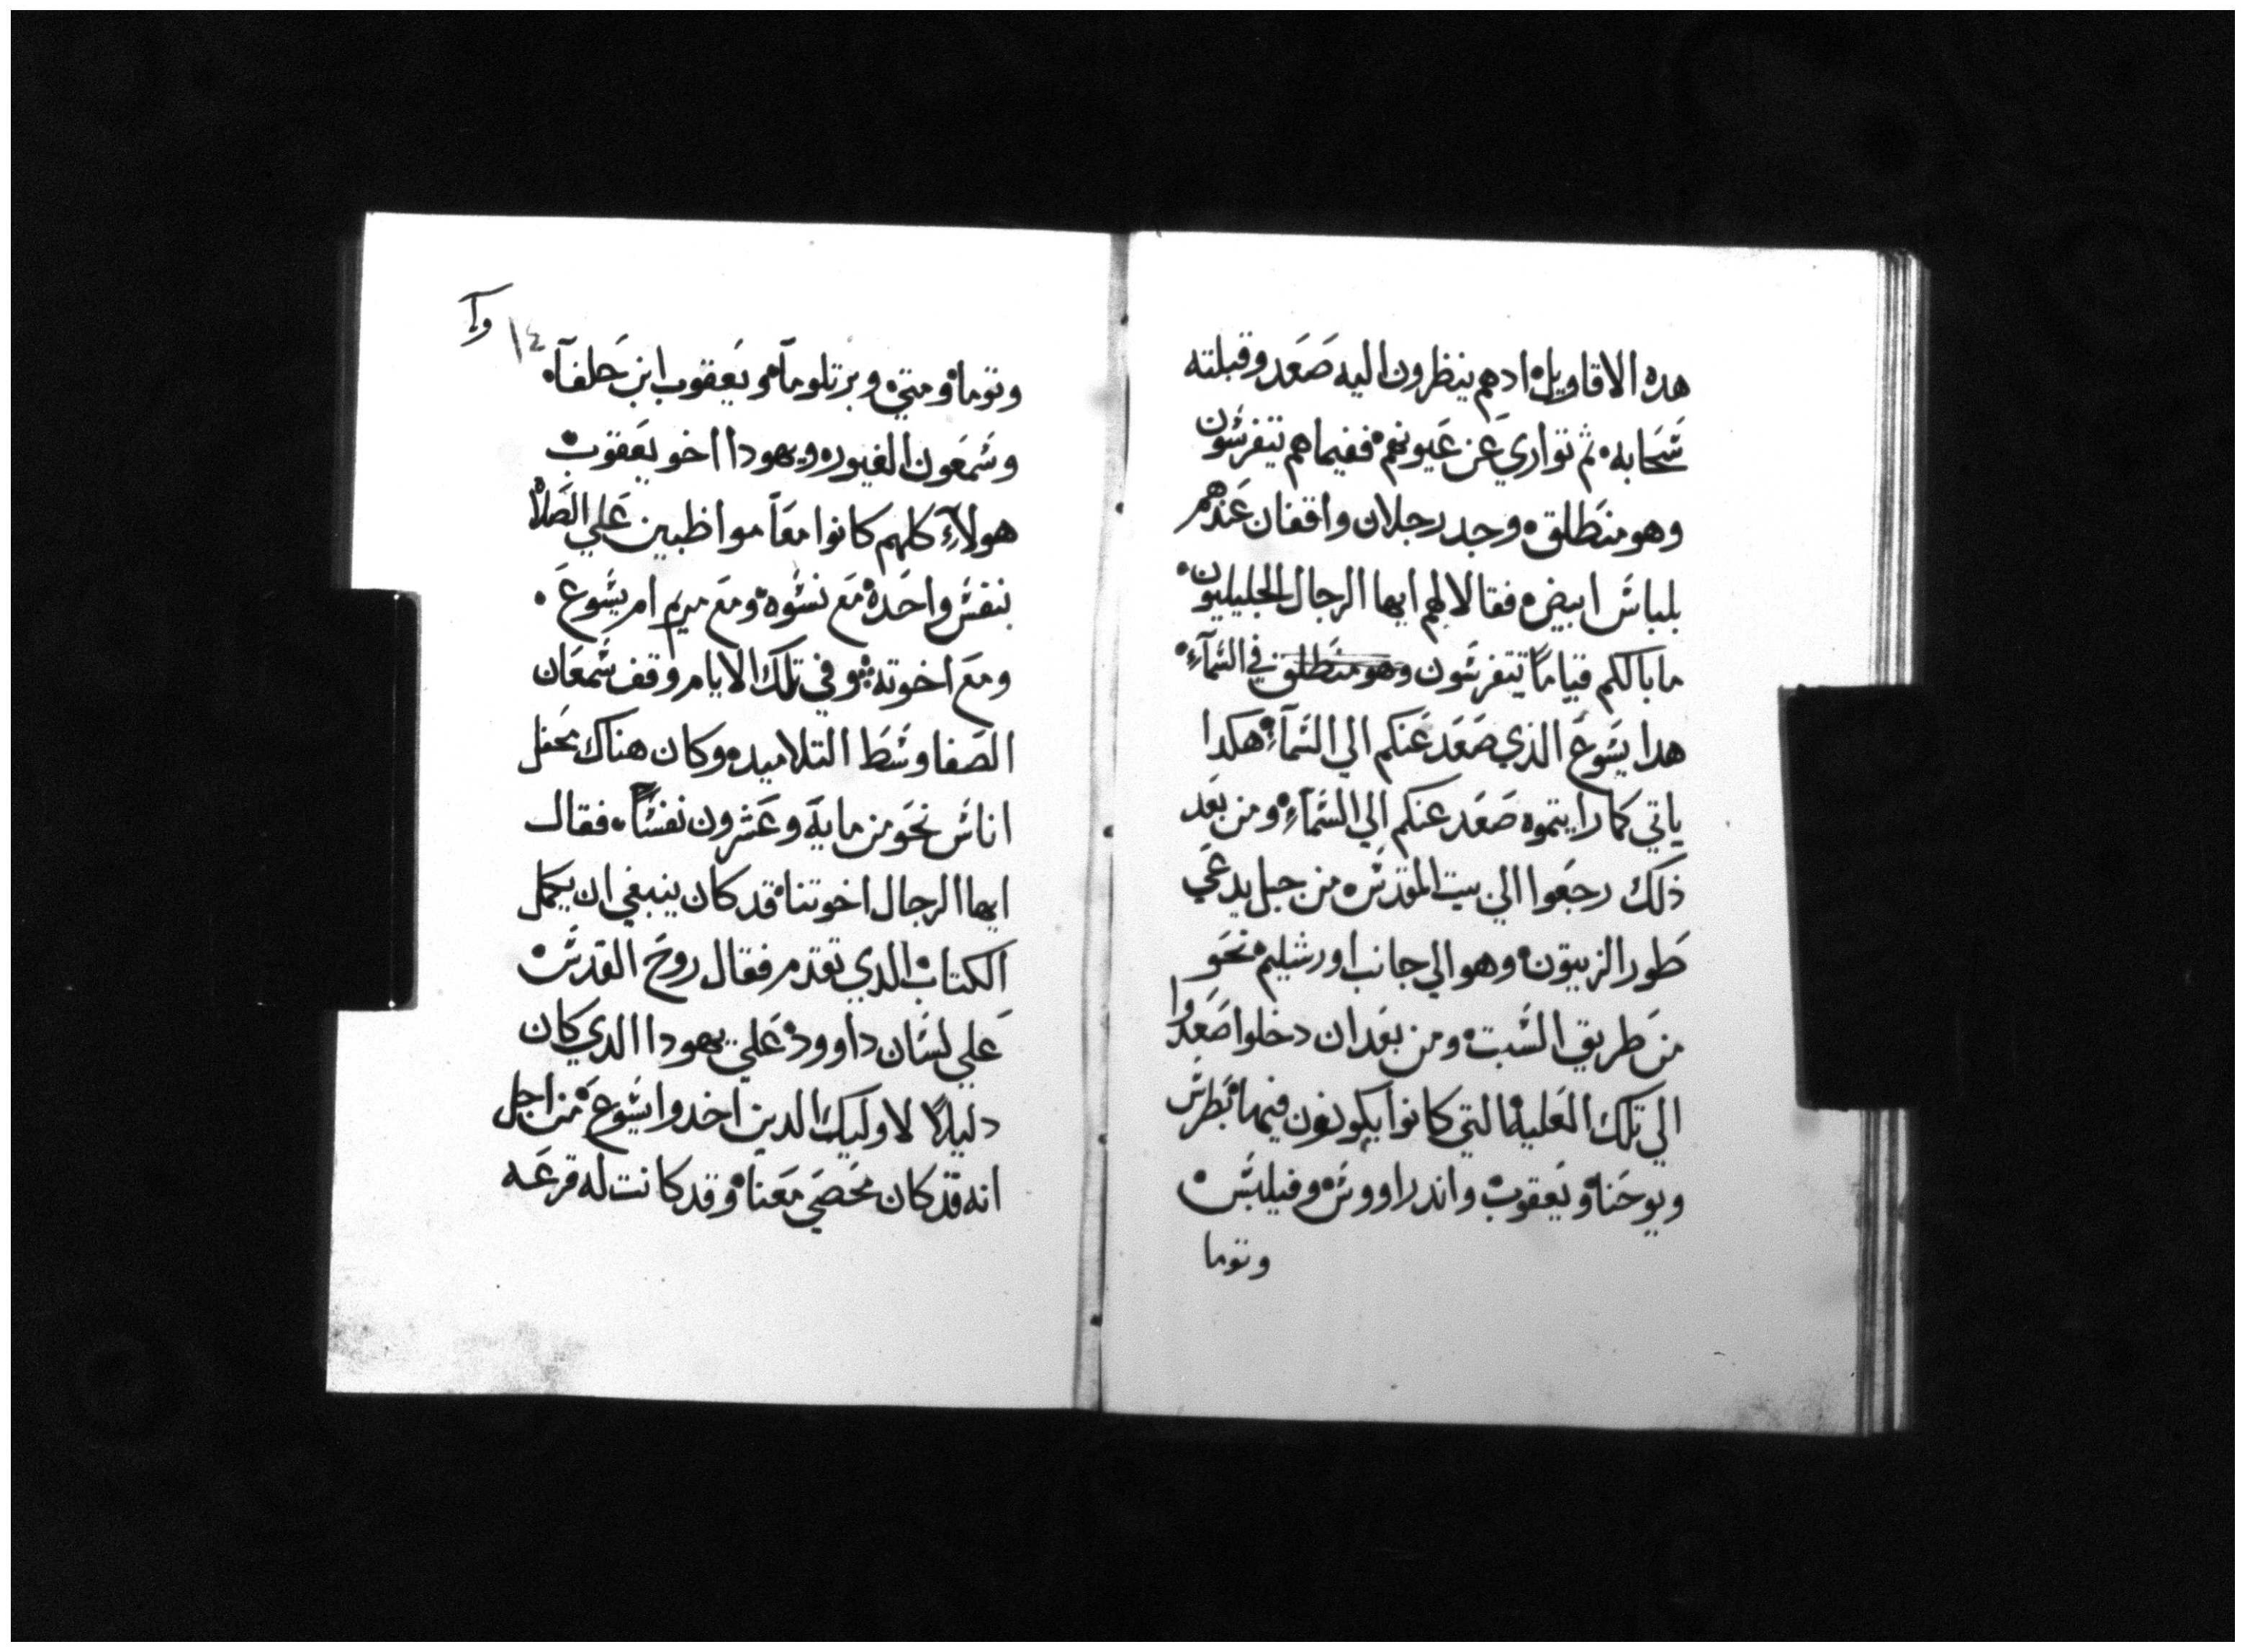 هده الاقاويل ادهم ينظرون اليه صَعَد وقبلته
سَحابه ثم تواري عَن عَيونهم ففيما هم يتفرسَون
وهو منطَلق وجد رجلان واقفان عَندهم
بلباسَ ابيض فقالا لهم ايها الرجال الجليليون
ما بالكم قياماً تتفرسَون وهو منطلق في السَمآءِ
هدا يسَوعَ الذي صَعَد عَنكم الي السَمآءِ هكدا
ياتي كما رايتموه صَعَد عنكم الي السَمآءِ ومن بعَد
ذلك رجعَوا الي بيت المقدسَ من جبل يدعَي
طَور الزيتون وهو الي جانب اورشليم نحَو
من طَريق السَبت ومن بعَد ان دخلوا صَعَدوا
الي تلك العَلية التي كانوا يكونون فيها بَطرسَ
ويوحَنا ويَعقوب واندراووسَ وفيلبسَ
وتوما
١٤
وتوما ومتي وبرتلوماَ ويَعقوب ابن حَلفاَ
وسَمعَون الغيور ويهودا اخو يعَقوب
هولآءِ كلهم كانوا معَاً مواظبين عَلي الصَلاة
بنفسَ واحَدة مَع نسَوة ومَع مريم ام يسَوعَ
ومعَ اخوته وفي تلك الايام وقف سَمعَان
الصَفا وسَطَ التلاميد وكان هناك محَفل
اناسَ نحَو من ماية وعَشرون نفسَاً فقال
ايها الرجال اخوتنا قد كان ينبغي ان يكمل
الكتاب الدي تقدم فقال روحَ القدسَ
عَلي لسَان داوود عَلي يهودا الدي كان
دليلاً لاوليك الدين اخدوا يسَوعَ من اجل
انه قد كان محَصَي معَنا وقد كانت له قرعَه